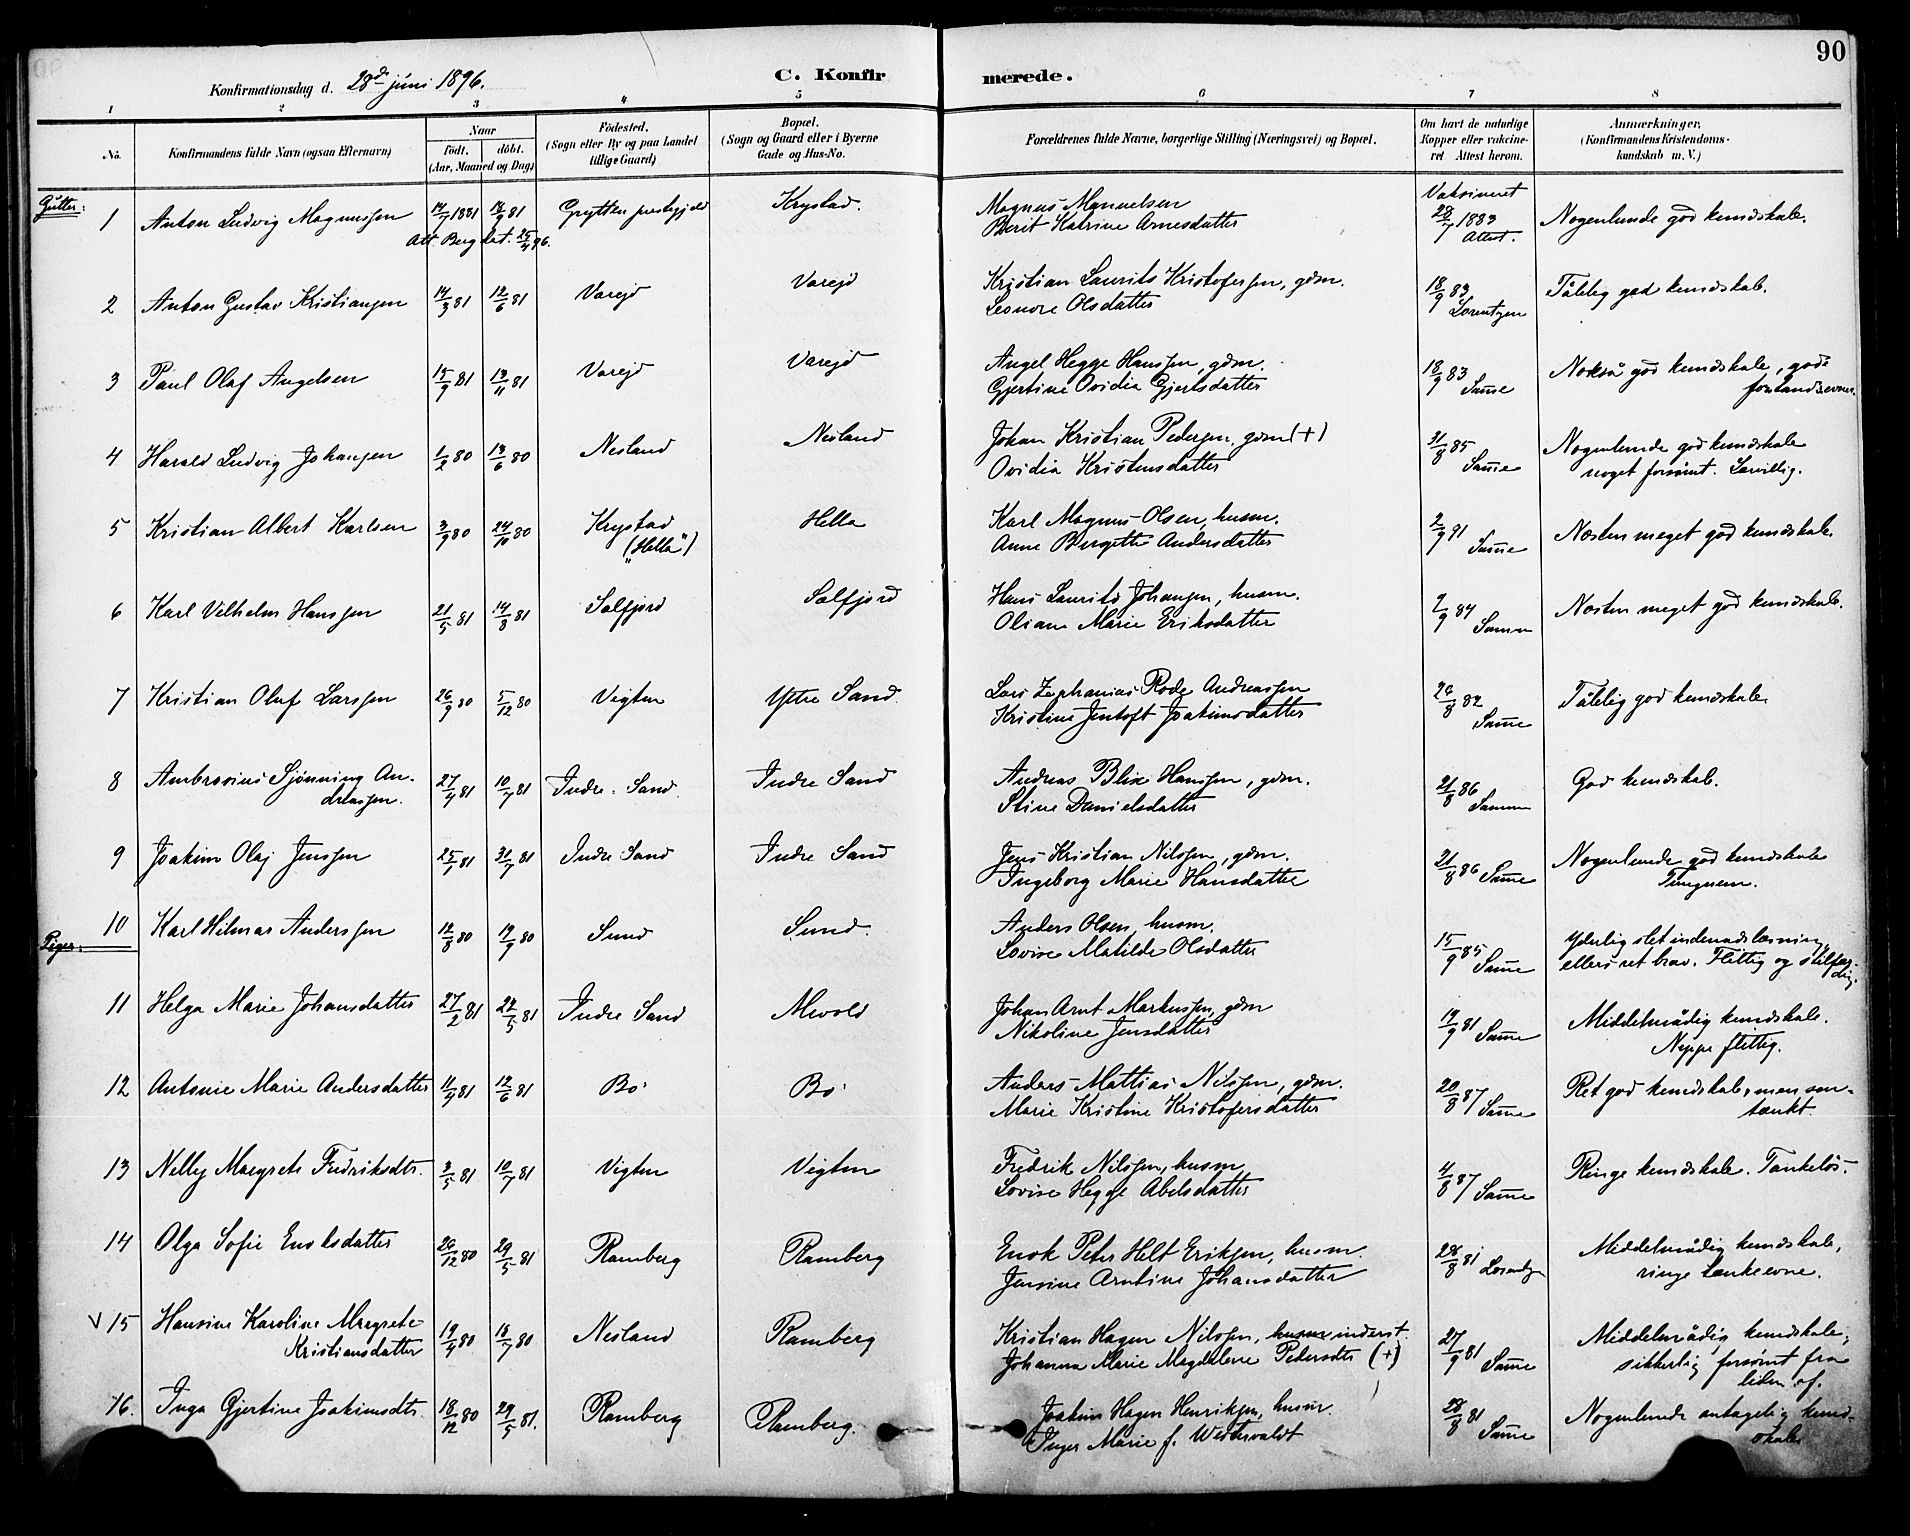 90
Konfirmationsdag d. 28de juni 1896.
C. Konfirmerede.
1 2 3 4 5 6 7 8
No.
Konfirmandens fulde Navn (ogsaa Efternavn)
Naar
født. døbt.
(Aar, Maaned og Dag)
Fødested.
(Sogn eller By og paa Landet
tillige Gaard)
Bopæl.
(Sogn og Gaard eller i Byerne
Gade og Hus-No.
Forældrenes fulde Navne, borgerlige Stilling (Næringsvei) og Bopæl.
Om havt de naturlige
Kopper eller vakcine-
ret Attest herom.
Anmærkninger,
(Konfirmandens Kristendoms-
kundskab m. V.)
Gutter:
1 Anton Ludvig Magnussen 14/7 1881 18/9 81 Grytten prestegjeld Krystad. Magnus Manuelsen Vaksineret
Att. Berg dat. 25/4 96. Berit Katrine Arnesdatter 28/7 1883 Attest. Nogenlunde god kundskab.
2 Anton Gustav Kristiansen 14/3 81 12/6 81 Varejd Varejd Kristian Laurits Kristofersen, gdm. 18/9 83 Tålelig god kundskab.
Leonore Olsdatter Lorentzen
3 Paul Olaf Angelsen 15/9 81 13/11 81 Varejd Varejd Angel Hegge Hanssen, gdm. 18/9 83 Nokså god kundskab, gode
Gjertine Ovidia Gjertsdatter Samme forstandsevner
4 Harald Ludvig Johansen 1/2 80 13/6 80 Nesland Nesland Johan Kristian Pedersen, gdm (+) 31/8 85 Nogenlunde god kundskab
Ovidia Kristensdatter Samme noget forsømt. Lærvillig.
5 Kristian Albert Karlsen 3/9 80 24/10 80 Krystad Hella Karl Magnus Olsen, husm. 2/9 91 Næsten meget god kundskab.
("Hella") Anne Bergitte Andersdatter Samme
6 Karl Vilhelm Hanssen 21/5 81 14/8 81 Selfjord Selfjord Hans Laurits Johansen, husm. 2/9 84 Næsten meget god kundskab.
Oliane Marie Eriksdatter Samme
7 Kristian Oluf Larssen 26/9 80 5/12 80 Vigten Ytre Sand. Lars Zephanias Rode Andreassen 26/8 82 Tålelig god kundskab.
Kristine Jentoft Joakimsdatter Samme
8 Ambrosius Sjønning An- 27/4 81 10/7 81 Indre Sand Indre Sand Andreas Blix Hanssen, gdm. 21/8 86 God kundskab.
dreassen. Stine Danielsdatter Samme
9 Joakim Olaj Jenssen 25/5 81 31/7 81 Indre Sand Indre Sand Jens Kristian Nilssen, gdm. 21/8 86 Nogenlunde god kundskab
Ingeborg Marie Hansdatter Samme Tungnem.
10 Karl Hilmar Anderssen 12/8 80 19/9 80 Sund Sund. Anders Olsen, husm. 15/9 85 Yderlig slet indenadslæsning,
Lovise Matilde Olsdatter Samme ellers ret brav. Flittig og stilfær-
dig.
Piger:
11 Helga Marie Johansdatter 27/2 81 22/5 81 Indre Sand Mevold Johan Arnt Markussen, gdm 19/9 81 Middelmådig kundskab.
Nikoline Jensdatter Samme Neppe flittig.
12 Antonie Marie Andersdatter 11/4 81 12/6 81 Bø Bø Anders Mattias Nilssen, gdm. 20/8 87 Ret god kundskab, men sen-
Marie Kristine Kristofersdatter Samme tænkt.
13 Nelly Margrete Fredriksdtr. 3/5 81 10/7 81 Vigten Vigten Fredrik Nilssen, husm 4/8 87 Ringe kundskab. Tankeløs.
Lovise Hegge Abelsdatter Samme
14 Olga Sofie Enoksdatter 26/12 80 29/5 81 Ramberg Ramberg Enok Peter Helt Eriksen, husm. 28/8 81 Middelmådig kundskab,
Jensine Arntine Johansdatter Lorentzen ringe tænkeevne.
V 15 Hansine Karoline Margrete 19/4 80 18/7 80 Nesland Ramberg Kristian Hagen Nilssen, husm inderst. 27/9 81 Middelmådig kundskab,
Kristiansdatter Johanna Marie Magdalene Pedersdtr (+) Samme sikkerlig forsømt fra
liden af.
16. Inga Gjertine Joakimsdtr. 18/12 80 29/5 81. Ramberg Ramberg. Joakim Hagen Henriksen, husm. 28/8 81 Nogenlunde antagelig kund-
Inger Marie f. Westervaldt Samme skab